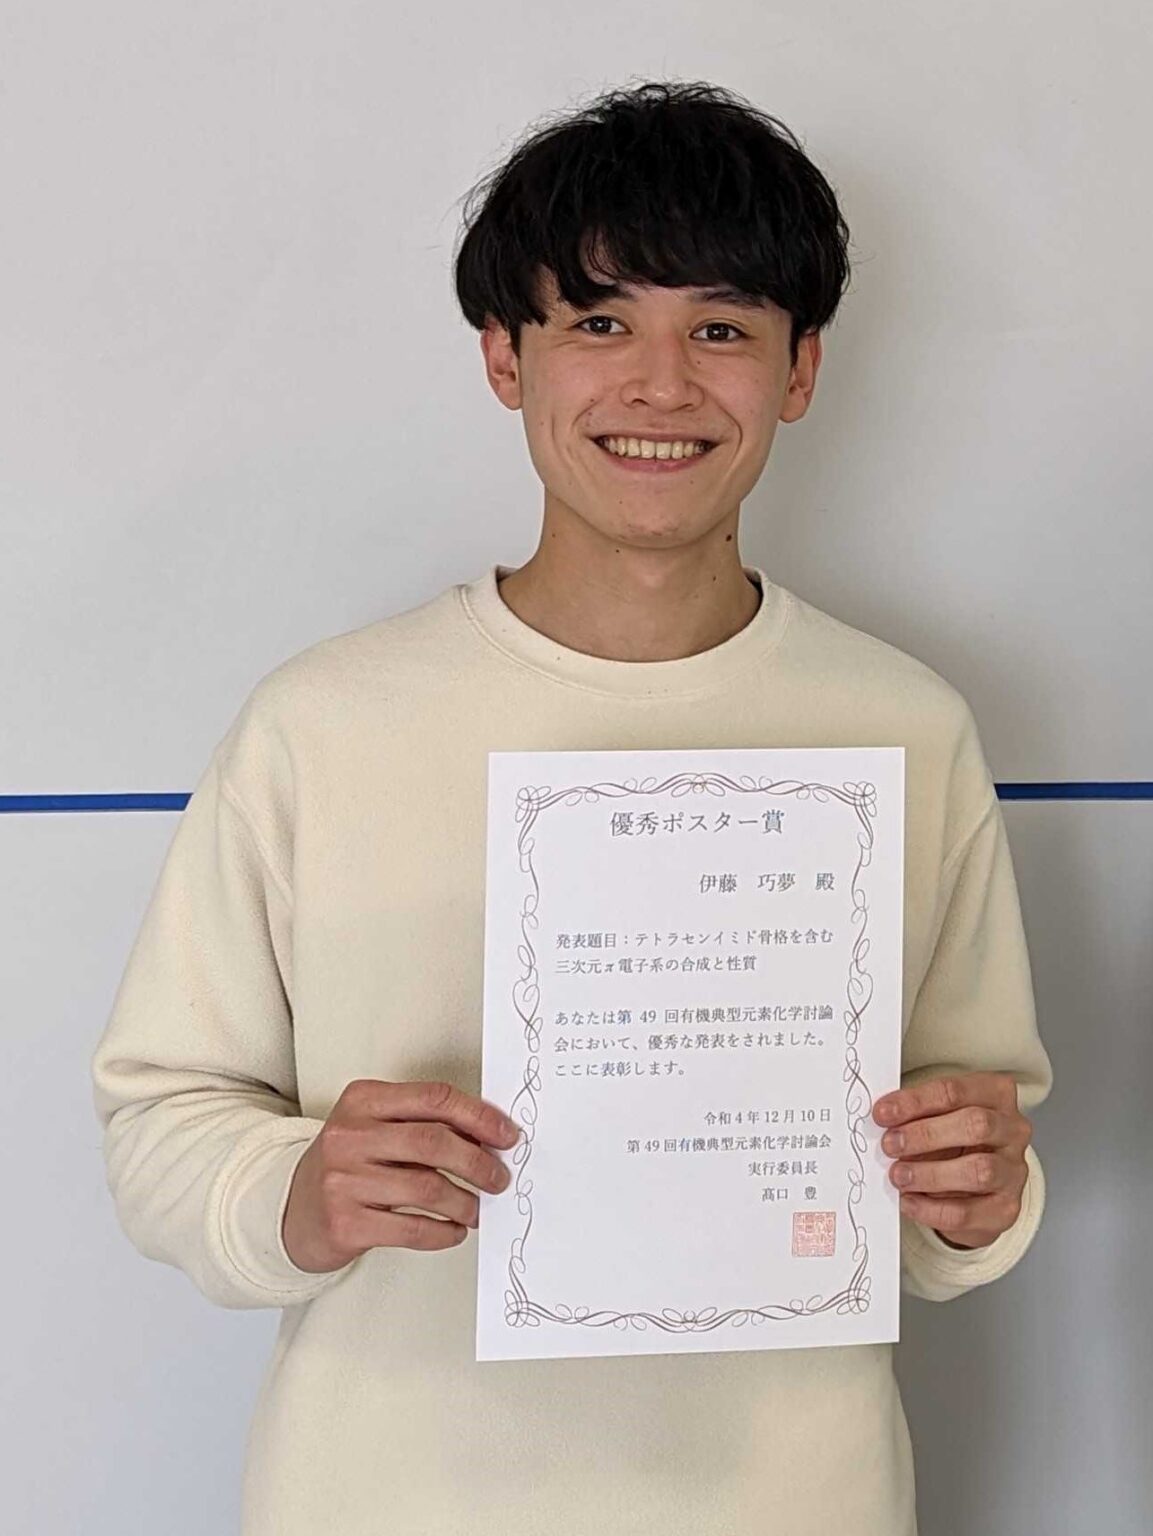 優秀ポスター賞
伊藤　巧夢　殿
発表題目：テトラセンイミド骨格を含む
三次元π電子系の合成と性質
あなたは第 49 回有機典型元素化学討論
会において、優秀な発表をされました。
ここに表彰します。
令和４年 12 月 10 日
第 49 回有機典型元素化学討論会
実行委員長
髙口　豊